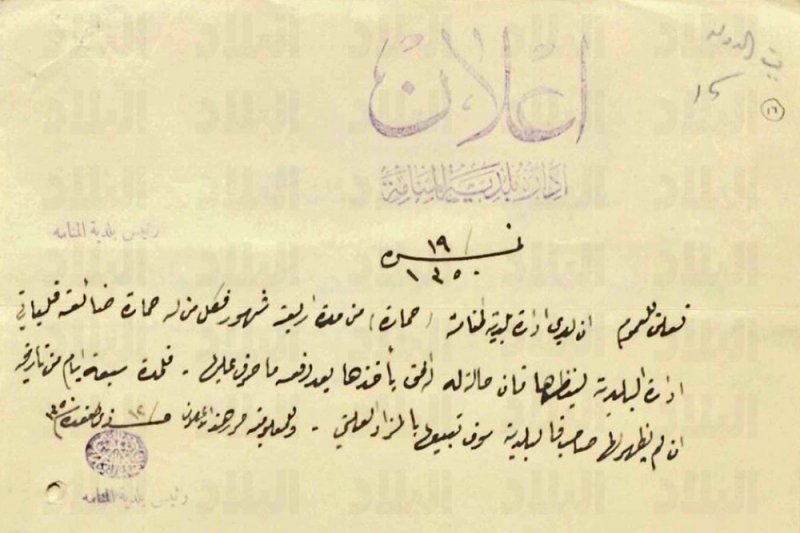 بقية الدولة
١٥
١٦
اعلان
ادارة بلدية المنامة
رئيس بلدية المنامه
نمره ١٩/١٣٥٠
نعلن للعموم ان لدي ادارة بلدية المنامة (حمارة) من مدة اربعة شهور فكل من له حمارة ضائعة فليأتي
ادارة البلدية لينظرها فان كانت له الحق يأخذها بعد دفعه ما صرف عليها - فلمدة سبعة ايام من تاريخه
ان لم يظهر لها صاحب فالبلدية سوف تبيعها بالمزاد العلني - وللمعلومية حرر هذا الاعلان
رئيس بلدية المنامه